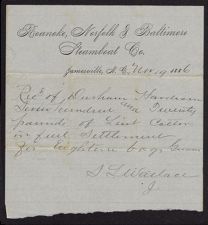 Roanoke, Norfolk & Baltimore
Steamboat Co.
Jamesville, N.C. Nov 19 1886
Rec'd of Durham Harrison
Seven hundred and Twenty
pounds of Lint Cotton
in full Settlement
for eighteen bags Guano